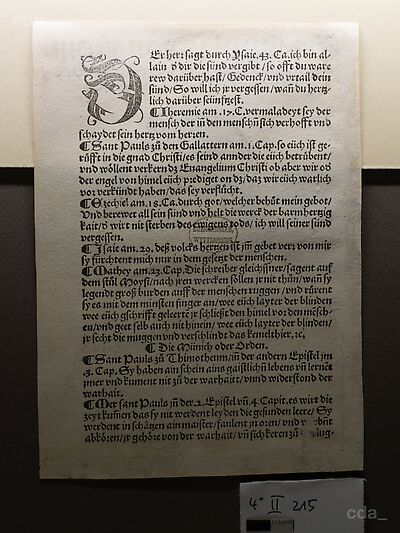 Er herr sagt durch Ysaie. 43. Ca. ich bin al-
lain der dir die sünd vergibt / so offt du ware
rew darüber hast / Gedenck / vnd vrtail dein
sünd / So will ich jr vergessen / wañ du hertz
lich darüber seüfftzest.
¶ Iheremie am .17. C. vermaladeyt sey der
mensch der iñ den menschñ sich verhofft vnd
schaydet sein hertz vom herren.
¶ Sant Pauls zů den Gallattern am .1. Cap. so eüch ist ge-
růfft in die gnad Christi / es seind annder die eüch betrübent /
vnd wöllent verkern dz Euangelium Christi ob aber wir oď
der engel von himel eüch prediget on dz / daz wir eüch warlich
vor verkündt haben / das sey verflůcht.
¶ Ezechiel am .18. Ca. durch got / welcher behüt mein gebot /
Vnd berewet all sein sünd vnd helt die werck der barmhertzig
kait / ď wirt nit sterben des ewigen tods / ich will seiner sünd
vergessen.
¶ Isaie am .29. deß volcks hertzen ist jm̃ gebet verr von mir
sy fürchtent mich nur in dem gesetz der menschen.
¶ Mathey am .23. Cap. Die schreiber gleichßner / sagent auf
dem stůl Moysi / nach jren wercken söllen jr nit thůn / wañ sy
legendt groß burden auff der menschen ruggen / vnd rürent
sy es mit dem minsten finger an / wee eüch layter der blinden
wee eüch gschrifft geleerte jr schließt den himel vor den mẽsch-
en / vnd geet selb auch nit hinein / wee eüch layter der blinden /
jr secht die muggen vnd verschlindt das kemelthier. ꝛc.
¶ Die Münich oder Orden.
¶ Sant Pauls zů Thimotheum / iñ der andern Epistel jm
.3. Cap. Sy haben ain schein ains gaistlichñ lebens vñ lernẽt
jmer vnd kument nit zů der warhait / vnnd widerstond der
warhait.
¶ Mer sant Pauls iñ der .2. Epistel vñ .4. Capit. es wirt die
zeyt kum̃en das sy nit werdent leyden die gesunden leere / Sy
werdent in schätzen ain maister / faulent jn oren / vnd
abkören / jr gehöre von der warhait / vñ sich keren zů
4° II 215
cda_